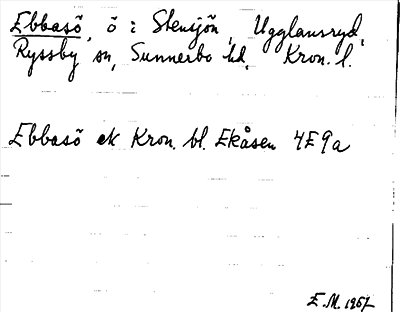 Ebbasö, ö i Stensjön, Ugglansryd,
Ryssby sn, Sunnerbo hd, Kron. l.
Ebbasö ek Kron. bl. Ekåsen 4E9a
E.M. 1967